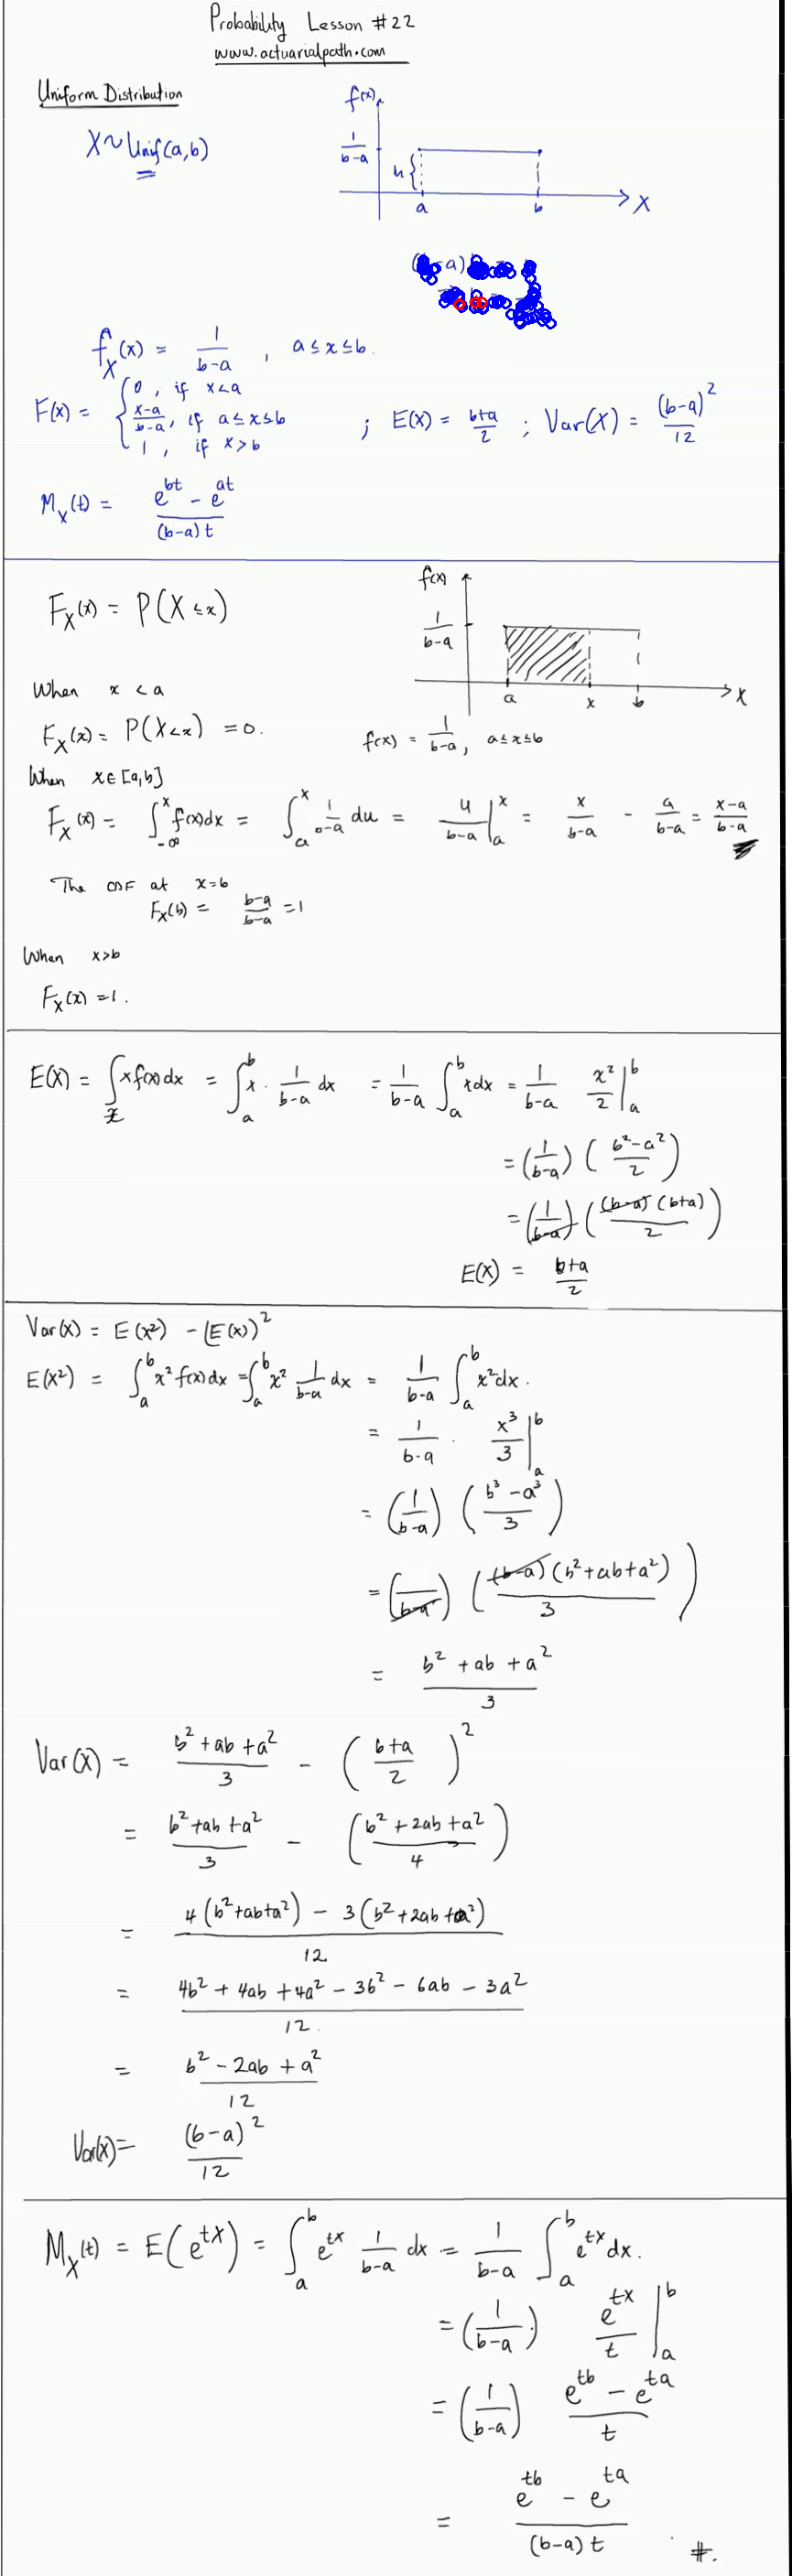 Probability Lesson #22
www.actuarialpath.com
Uniform Distribution
X ~ Unif(a,b)
f(x)
1/(b-a)
h{
a b X
-a)
f_X(x) = 1/(b-a) , a ≤ x ≤ b.
F(x) = { 0, if x<a
(x-a)/(b-a), if a ≤ x ≤ b ; E(X) = (b+a)/2 ; Var(X) = (b-a)^2/12
1, if x>b
M_X(t) = (e^{bt} - e^{at})/((b-a)t)
F_X(x) = P(X ≤ x)
f(x)
1/(b-a)
a x b X
When x < a
F_X(x) = P(X<x) = 0.
f(x) = 1/(b-a), a ≤ x ≤ b
When x ∈ [a,b]
F_X(x) = ∫_{-∞}^{x} f(x)dx = ∫_a^x 1/(b-a) du = u/(b-a) |_a^x = x/(b-a) - a/(b-a) = (x-a)/(b-a)
The CDF at x=b
F_X(b) = (b-a)/(b-a) = 1
When x>b
F_X(x) = 1.
E(X) = ∫_x x f(x) dx = ∫_a^b x · 1/(b-a) dx = 1/(b-a) ∫_a^b x dx = 1/(b-a) x^2/2 |_a^b
= (1/(b-a)) ((b^2-a^2)/2)
= (1/(b-a)) ((b-a)(b+a)/2)
E(X) = (b+a)/2
Var(X) = E(X^2) - (E(X))^2
E(X^2) = ∫_a^b x^2 f(x) dx = ∫_a^b x^2 1/(b-a) dx = 1/(b-a) ∫_a^b x^2 dx.
= 1/(b-a) · x^3/3 |_a^b
= (1/(b-a)) ((b^3 - a^3)/3)
= (1/(b-a)) ((b-a)(b^2+ab+a^2)/3)
= (b^2 + ab + a^2)/3
Var(X) = (b^2+ab+a^2)/3 - ((b+a)/2)^2
= (b^2+ab+a^2)/3 - ((b^2+2ab+a^2)/4)
= (4(b^2+ab+a^2) - 3(b^2+2ab+a^2))/12
= (4b^2 + 4ab + 4a^2 - 3b^2 - 6ab - 3a^2)/12.
= (b^2 - 2ab + a^2)/12
Var(X) = (b-a)^2/12
M_X(t) = E(e^{tX}) = ∫_a^b e^{tx} 1/(b-a) dx = 1/(b-a) ∫_a^b e^{tx} dx.
= (1/(b-a)) e^{tx}/t |_a^b
= (1/(b-a)) (e^{tb} - e^{ta})/t
= (e^{tb} - e^{ta})/((b-a)t) #.